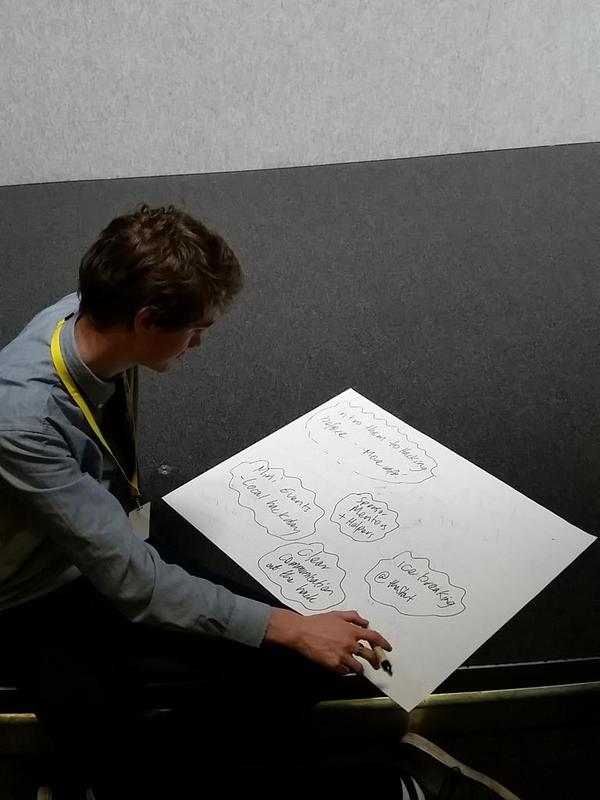 intro them to Hacking
before - More info
Mini Events
Local hackday
Sponsor
Mentors
+ Helpers
Clear
Communication
of the hack
ice breaking
@ the Start